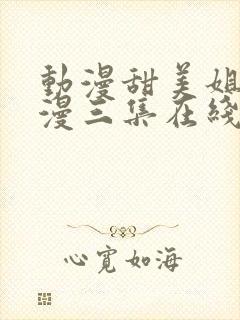 動漫甜美姐
漫三集在綫
心寬如海